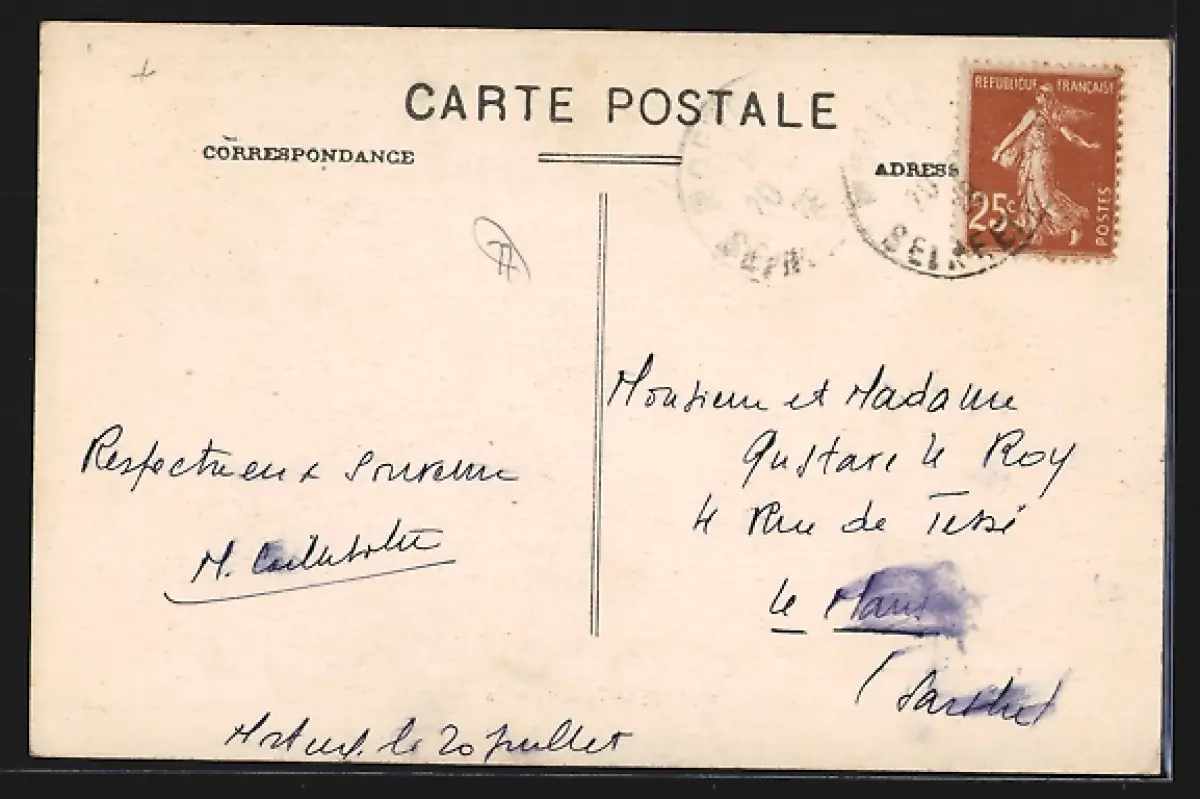 CARTE POSTALE
CORRESPONDANCE
ADRESS
REPUBLIQUE FRANÇAISE
25c
POSTES
Respectueux Souvenir
M. Caillebotte
le 20 juillet
Monsieur et Madame
Gustave le Roy
4 Rue de Tessé
le Mans
(Sarthe)